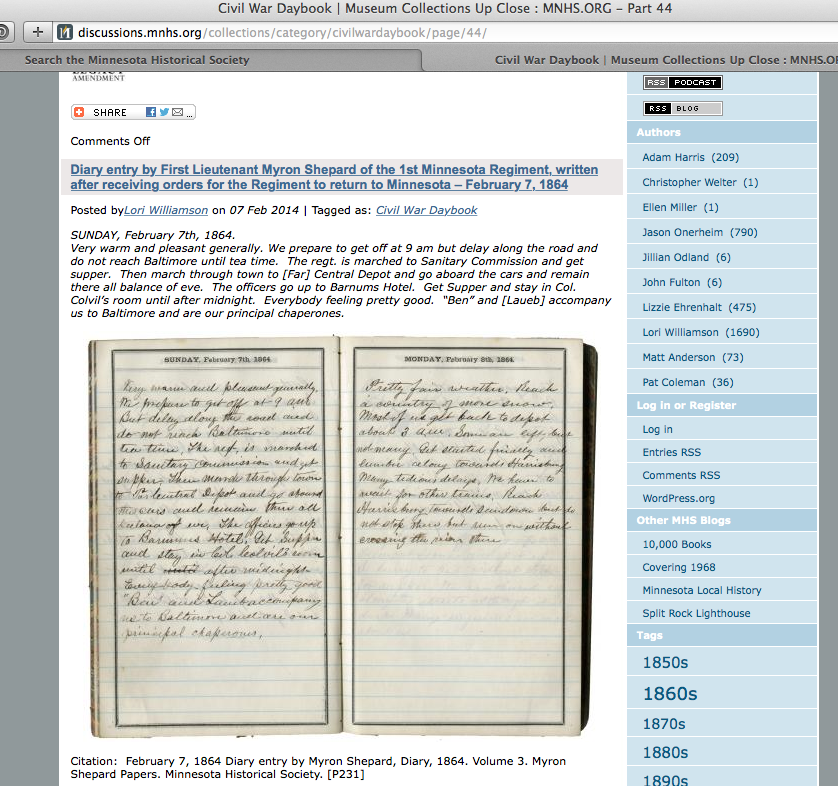 Civil War Daybook | Museum Collections Up Close : MNHS.ORG – Part 44
discussions.mnhs.org/collections/category/civilwardaybook/page/44/
Search the Minnesota Historical Society
Civil War Daybook | Museum Collections Up Close : MNHS.OR
LEGACY
AMENDMENT
SHARE ...
Comments Off
Diary entry by First Lieutenant Myron Shepard of the 1st Minnesota Regiment, written
after receiving orders for the Regiment to return to Minnesota – February 7, 1864
Posted byLori Williamson on 07 Feb 2014 | Tagged as: Civil War Daybook
SUNDAY, February 7th, 1864.
Very warm and pleasant generally. We prepare to get off at 9 am but delay along the road and
do not reach Baltimore until tea time. The regt. is marched to Sanitary Commission and get
supper. Then march through town to [Far] Central Depot and go aboard the cars and remain
there all balance of eve. The officers go up to Barnums Hotel. Get Supper and stay in Col.
Colvil's room until after midnight. Everybody feeling pretty good. "Ben" and [Laueb] accompany
us to Baltimore and are our principal chaperones.
SUNDAY, February 7th, 1864.
Very warm and pleasant generally
We prepare to get off at 9 am
But delay along the road and
do not reach Baltimore until
tea time. The regt. is marched
to Sanitary Commission and get
supper. Then march through town
to Central Depot and go aboard
the cars and remain there all
balance of eve. The officers go up
to Barnums Hotel. Get Supper
and stay in Col. Colvil's room
until after midnight.
Everybody feeling pretty good
"Ben" and accompany
us to Baltimore and are our
principal chaperones.
MONDAY, February 8th, 1864.
Pretty fair weather. Reach
a country of more snow.
Most of us get back to depot
about 3 a.m. Some are left but
not many. Get started finally and
lumber along towards Harrisburg
Many tedious delays. We have to
wait for other trains. Reach
Harrisburg towards sundown but do
not stop there but run on without
crossing the river there
Citation: February 7, 1864 Diary entry by Myron Shepard, Diary, 1864. Volume 3. Myron
Shepard Papers. Minnesota Historical Society. [P231]
RSS PODCAST
RSS BLOG
Authors
Adam Harris (209)
Christopher Welter (1)
Ellen Miller (1)
Jason Onerheim (790)
Jillian Odland (6)
John Fulton (6)
Lizzie Ehrenhalt (475)
Lori Williamson (1690)
Matt Anderson (73)
Pat Coleman (36)
Log in or Register
Log in
Entries RSS
Comments RSS
WordPress.org
Other MHS Blogs
10,000 Books
Covering 1968
Minnesota Local History
Split Rock Lighthouse
Tags
1850s
1860s
1870s
1880s
1890s